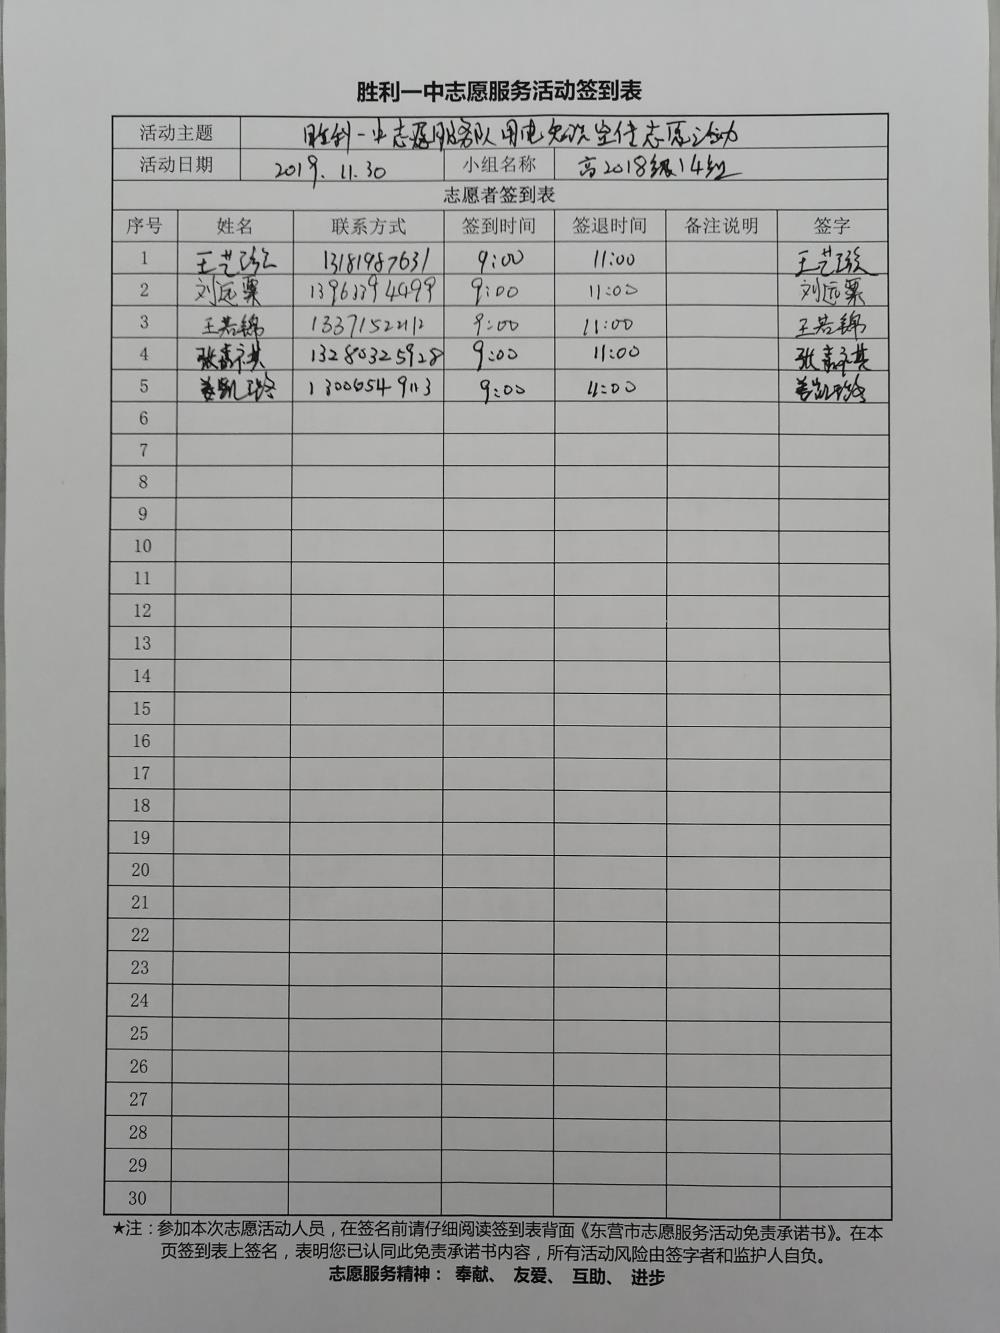 胜利一中志愿服务活动签到表
活动主题 胜利一中志愿服务队用电知识宣传志愿活动
活动日期 2019.11.30 小组名称 高2018级14组
志愿者签到表
序号 姓名 联系方式 签到时间 签退时间 备注说明 签字
1 王艺 13181987631 9:00 11:00 王艺
2 刘远粟 13963394499 9:00 11:00 刘远粟
3 王若锦 13371522112 9:00 11:00 王若锦
4 张嘉琪 13280325928 9:00 11:00 张嘉琪
5 姜凯 13006549113 9:00 11:00 姜凯
6
7
8
9
10
11
12
13
14
15
16
17
18
19
20
21
22
23
24
25
26
27
28
29
30
★注：参加本次志愿活动人员，在签名前请仔细阅读签到表背面《东营市志愿服务活动免责承诺书》。在本
页签到表上签名，表明您已认同此免责承诺书内容，所有活动风险由签字者和监护人自负。
志愿服务精神： 奉献、 友爱、 互助、 进步